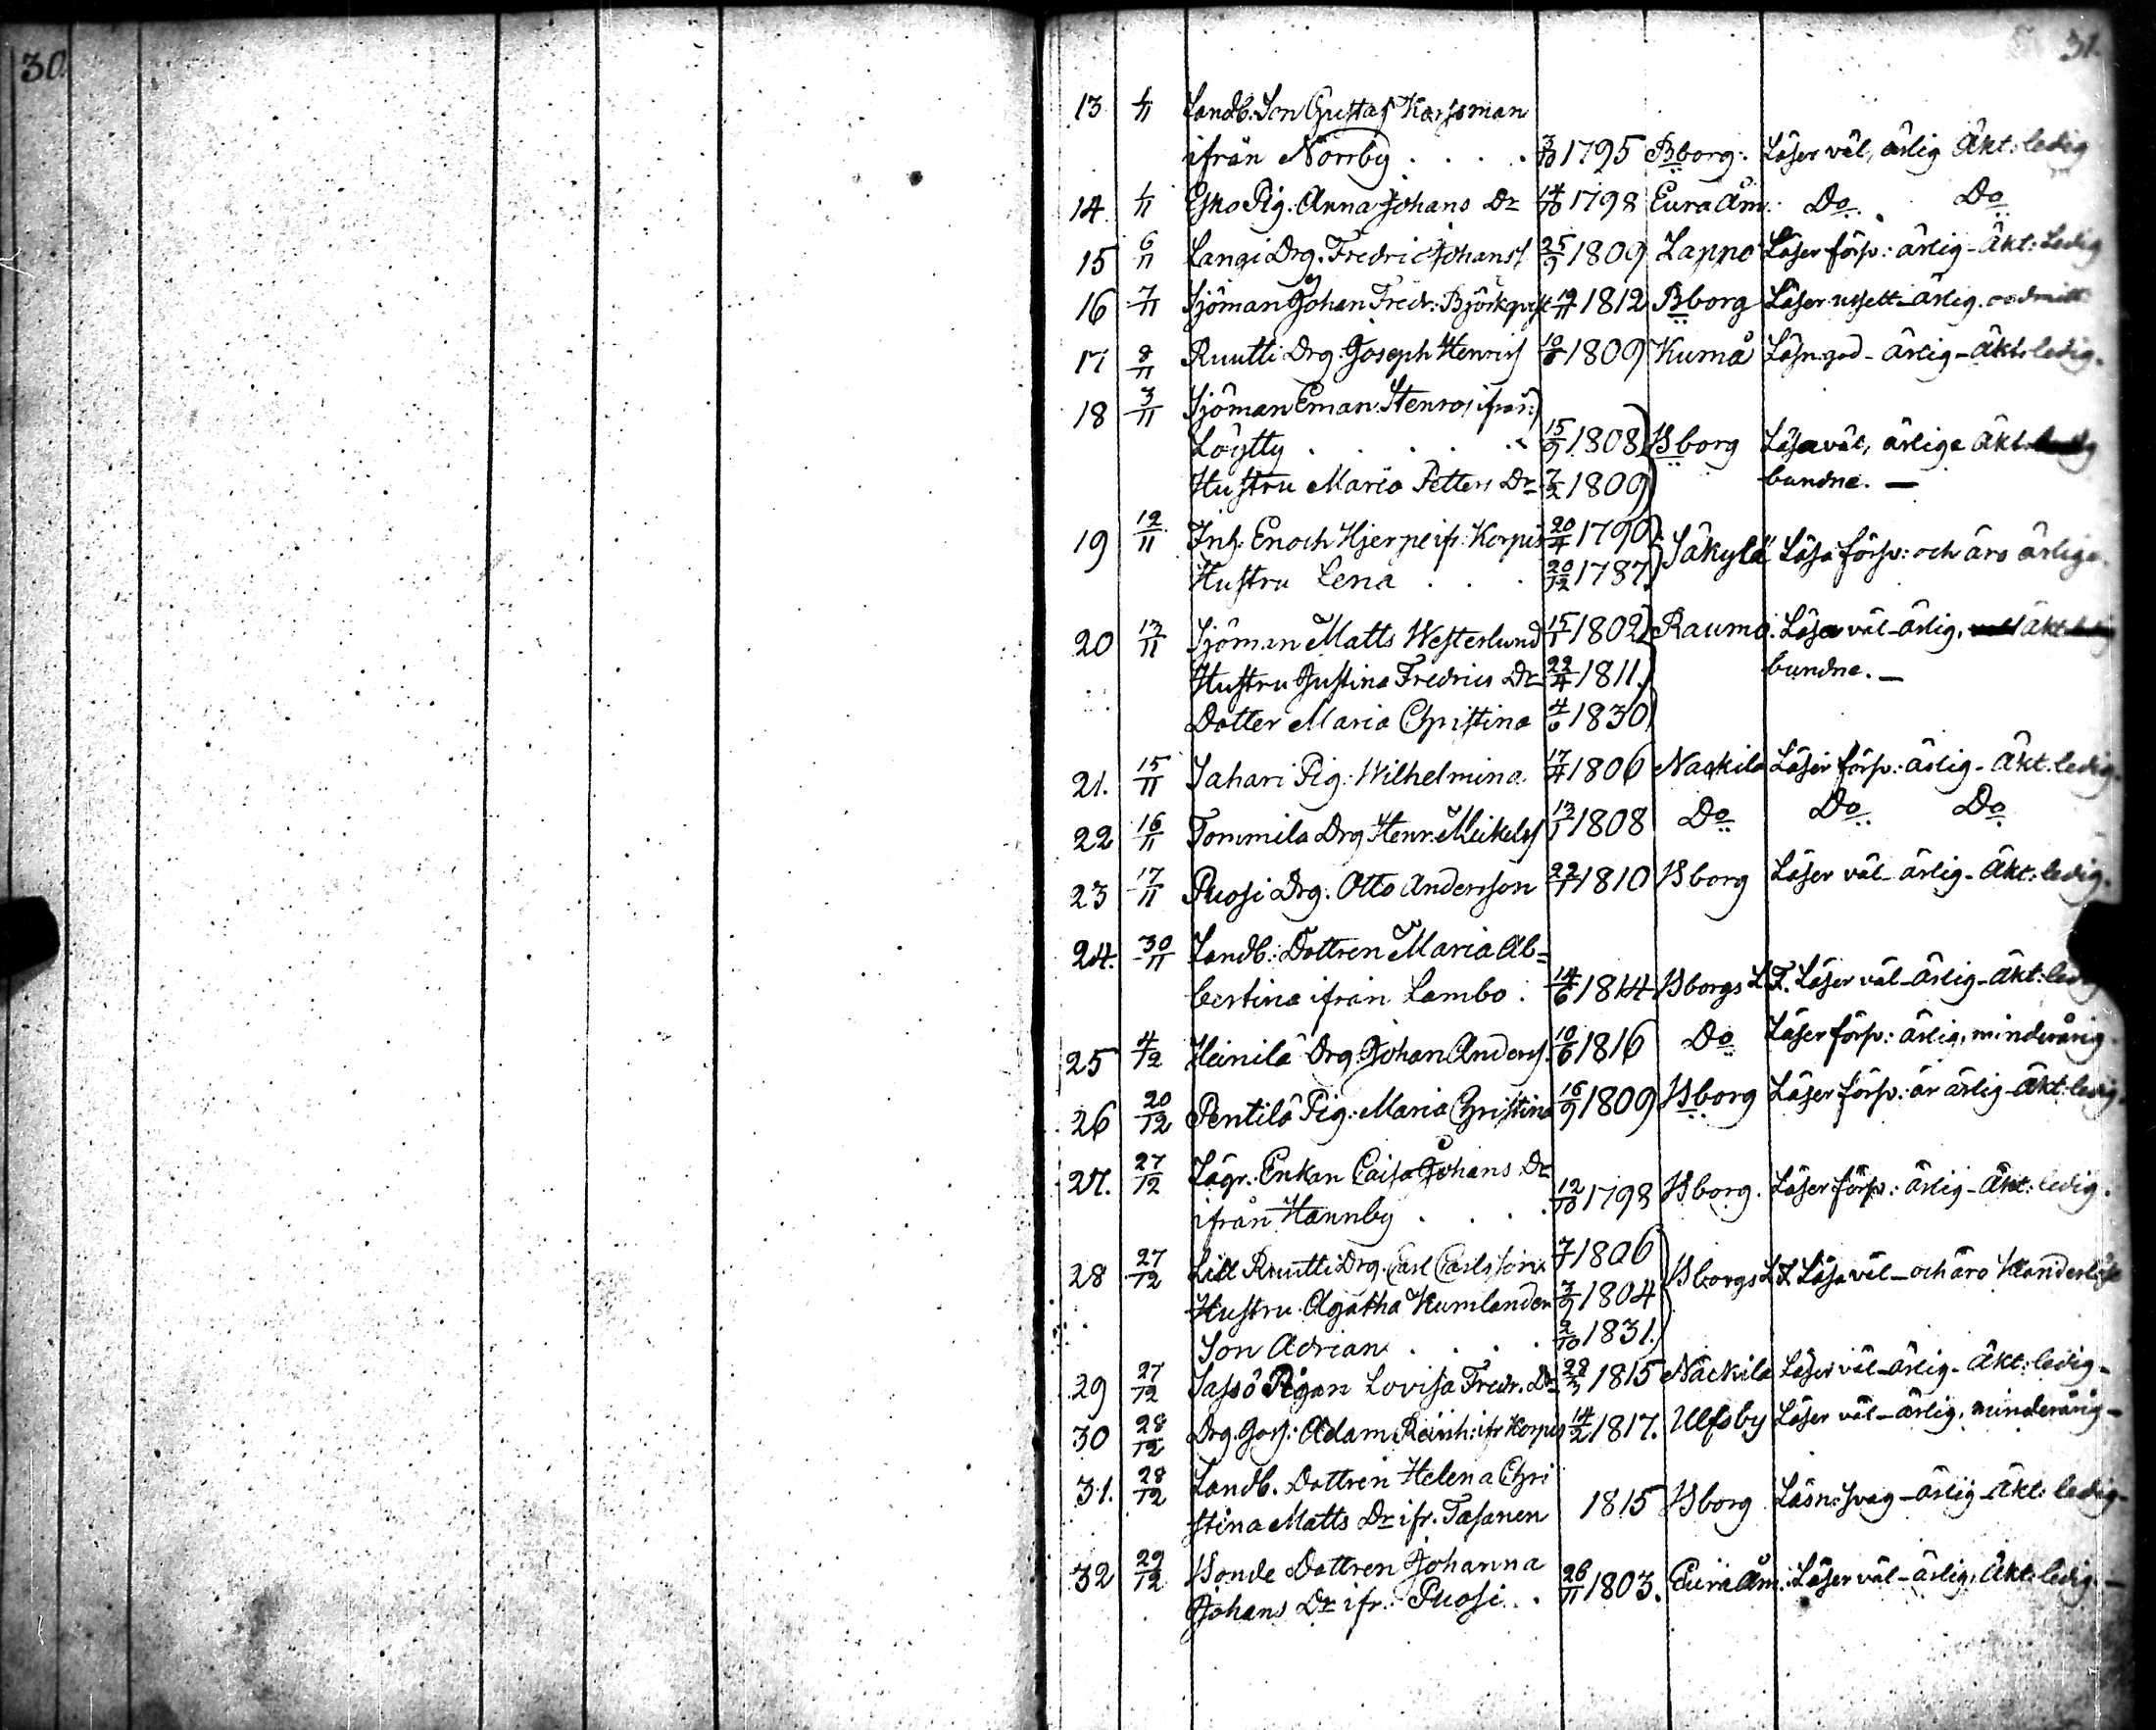 30.
31.
13 1/11 Landb. Son Gustaf Karsman
ifrån Norrby . . . . 3/10 1795 Bborg. Läser väl, ärlig Äkt: ledig
14. 1/11 Esko Pig. Anna Johans Dr 14/10 1798 Eura Åm. Do Do
15 6/11 Langi Drg. Fredric Johanss 25/9 1809 Lappo Läser förs: ärlig - Äkt: Ledig
16 7/11 Sjöman Johan Fredr. Björkqvist 19/11 1812 Bborg Läser ärlig
17 8/11 Ruutti Drg. Joseph Henrics 1809 Kumå Läsn: god - ärlig - Äkt: ledig.
18 3/11 Sjöman Eman. Stenros ifrån
Löytty . . . . 15/9 1808 Bborg Läsa väl, ärlige Äkt.
Hustru Maria Petters Dr 7/2 1809 bundne. —
19 12/11 Inh. Enoch Hjerpe ifr. Korpis 20/4 1790 Säkylä Läsa förs: och äro ärlige.
Hustru Lena . . . 20/12 1787
20 13/11 Sjöman Matts Westerlund 15/1 1802 Raumo. Läsa väl - ärlig, äkt
Hustru Justina Fredrics Dr 22/4 1811. bundne. —
Dotter Maria Christina 4/6 1830
21. 15/11 Sahari Pig: Wilhelmina 17/4 1806 Nackila Läser förs: ärlig - Äkt: ledig.
22 16/11 Tommila Drg Henr. Mikelss 13/1 1808 Do Do Do
23 17/11 Puosi Drg. Otto Andersson 22/1 1810 Bborg Läser väl - ärlig - Äkt: ledig.
24. 30/11 Landb: Dottren Maria Al=
bertina ifrån Lambo . 14/6 1814 Bborgs L.F. Läser väl - ärlig - Äkt: ledig
25 4/12 Heinilä Drg. Johan Anderss. 10/6 1816 Do Läser förs: ärlig, minderårig.
26 20/12 Pentilä Pig: Maria Christina 16/9 1809 Bborg Läser förs: är ärlig - Äkt: ledig.
27. 27/12 Enkan Caisa Johans Dr
ifrån Hannby . . . 12/10 1798 Bborg. Läser förs: ärlig - Äkt: ledig.
28 27/12 Lill Ruutti Drg. Carl Carlsson 1806
Hustru Agatha Kumlander 3/9 1804 Bborgs L.F. Läsa väl - och äro klanderlöse
Son Adrian . . . . 2/10 1831.
29 27/12 Sassö Pigan Lovisa Fredr. Dr 28/3 1815 Nackila Läser väl - ärlig - Äkt: ledig -
30 28/12 Drg. Goss: Adam Reinh: ifr Korpis 14/2 1817. Ulfsby Läser väl - ärlig, minderårig -
31. 28/12 Landb. Dottren Helena Chri
stina Matts Dr ifr. Tasanen 1815 Bborg Läsn: svag - ärlig - Äkt: ledig -
32 29/12 Bonde Dottren Johanna
Johans Dr ifr. Puosi . . 26/11 1803. Eura Åm. Läser väl - ärlig, Äkt: ledig. —